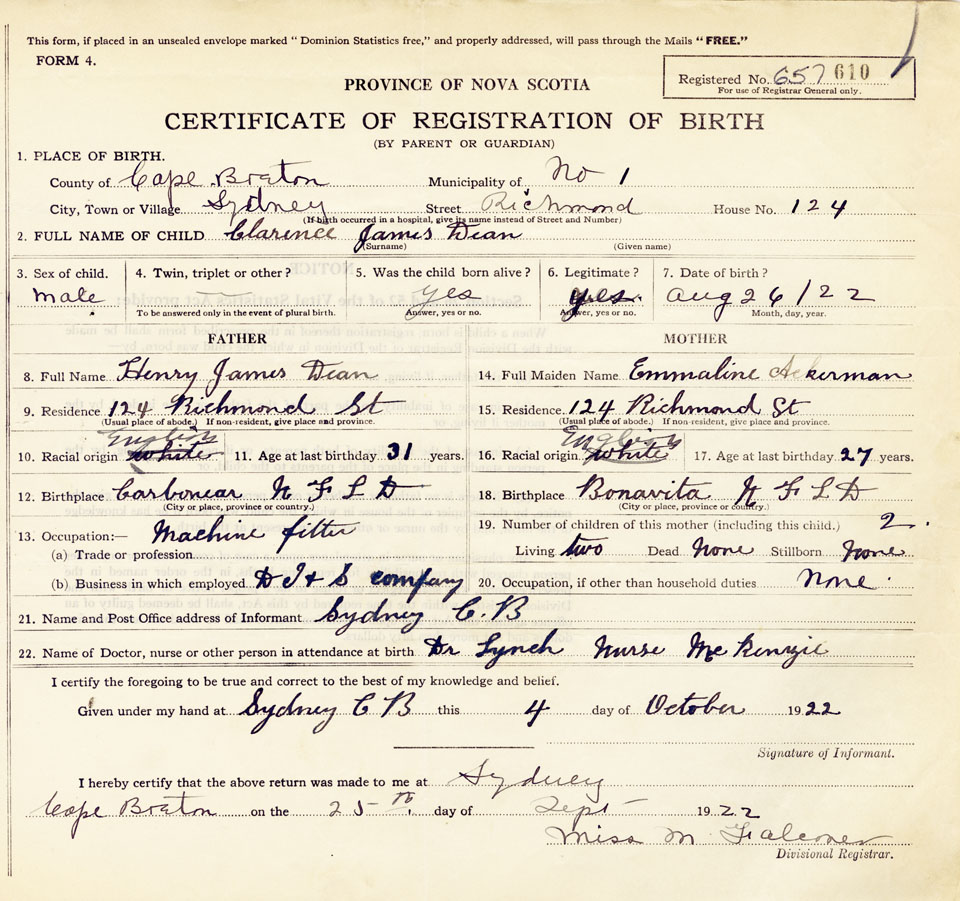 This form, if placed in an unsealed envelope marked "Dominion Statistics free," and properly addressed, will pass through the Mails "FREE."
FORM 4.
Registered No. 657 610
For use of Registrar General only.
PROVINCE OF NOVA SCOTIA
CERTIFICATE OF REGISTRATION OF BIRTH
(BY PARENT OR GUARDIAN)
1. PLACE OF BIRTH.
County of Cape Breton Municipality of No 1
City, Town or Village Sydney Street Richmond House No. 124
(If birth occurred in a hospital, give its name instead of Street and Number)
2. FULL NAME OF CHILD Clarence James Dean
(Surname) (Given name)
3. Sex of child. 4. Twin, triplet or other? 5. Was the child born alive? 6. Legitimate? 7. Date of birth?
male — Yes yes. Aug 26/22
To be answered only in the event of plural birth. Answer, yes or no. Answer, yes or no. Month, day, year.
FATHER MOTHER
8. Full Name Henry James Dean 14. Full Maiden Name Emmaline Ackerman
9. Residence 124 Richmond St 15. Residence 124 Richmond St
(Usual place of abode.) If non-resident, give place and province. (Usual place of abode.) If non-resident, give place and province.
English English
10. Racial origin white 11. Age at last birthday 31 years. 16. Racial origin white 17. Age at last birthday 27 years.
12. Birthplace Carbonear N F L D 18. Birthplace Bonavita N F L D
(City or place, province or country.) (City or place, province or country.)
13. Occupation:— Machine fitter 19. Number of children of this mother (including this child.) 2.
(a) Trade or profession Living two Dead None Stillborn None
(b) Business in which employed D I & S company 20. Occupation, if other than household duties None.
21. Name and Post Office address of Informant Sydney C.B
22. Name of Doctor, nurse or other person in attendance at birth Dr Lynch Nurse McKenzie
I certify the foregoing to be true and correct to the best of my knowledge and belief.
Given under my hand at Sydney C B this 4 day of October 1922
Signature of Informant.
I hereby certify that the above return was made to me at Sydney
Cape Breton on the 25th day of Sept 1922
Miss M Falconer
Divisional Registrar.